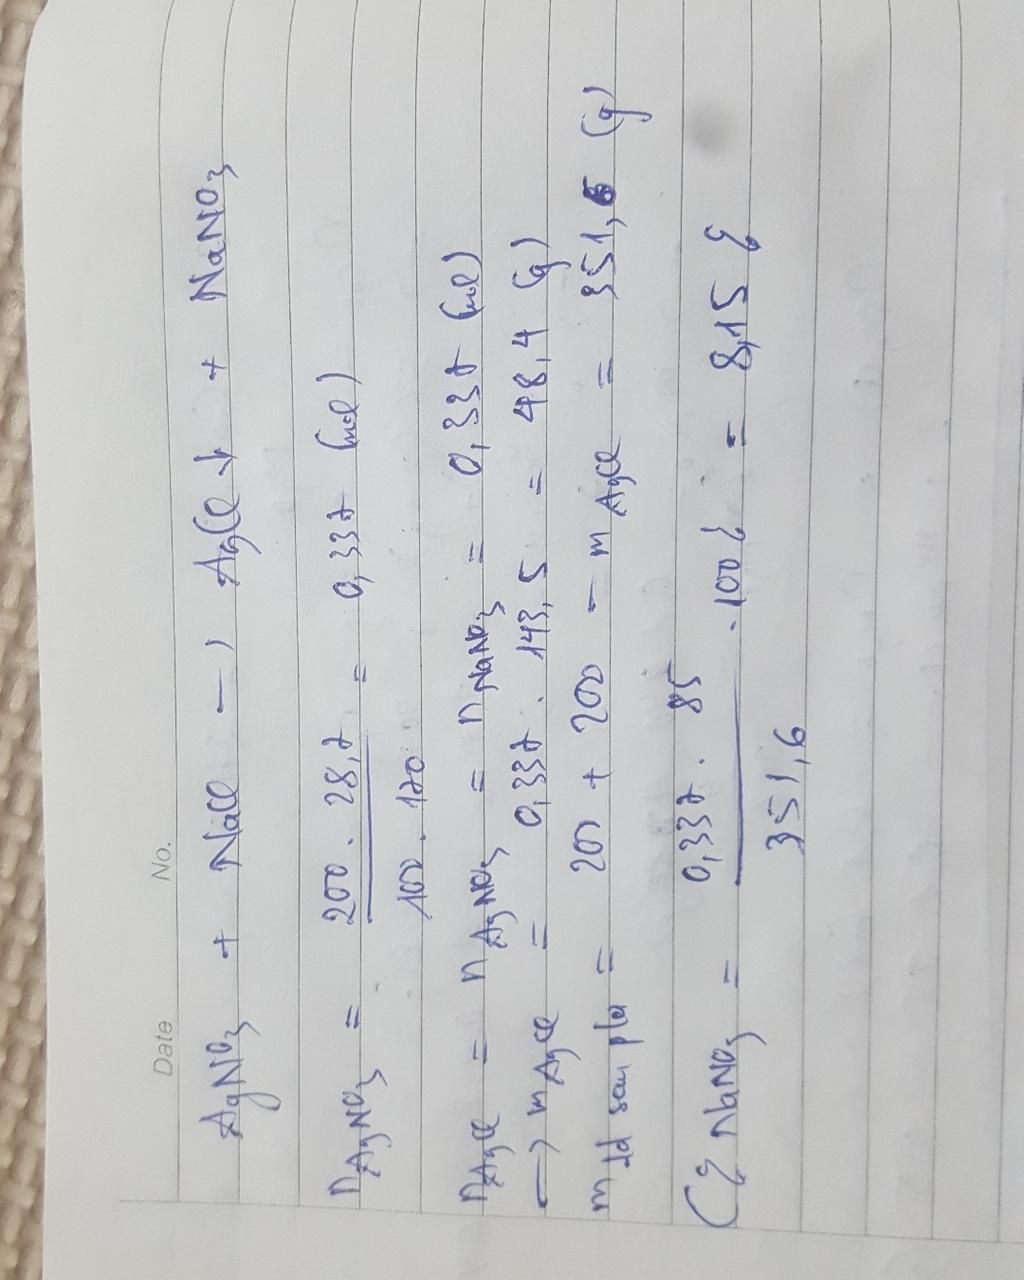 Date No.
AgNO3 + NaCl —) AgCl ↓ + NaNO3
nAgNO3 = 200 . 28,7 = 0,337 (mol)
100 . 170
nAgCl = nAgNO3 = nNaNO3 = 0,337 (mol)
—) mAgCl = 0,337 . 143,5 = 48,4 (g)
m dd sau pứ = 200 + 200 – m AgCl = 351,6 (g)
C% NaNO3 = 0,337 . 85 . 100% = 8,15 %
351,6